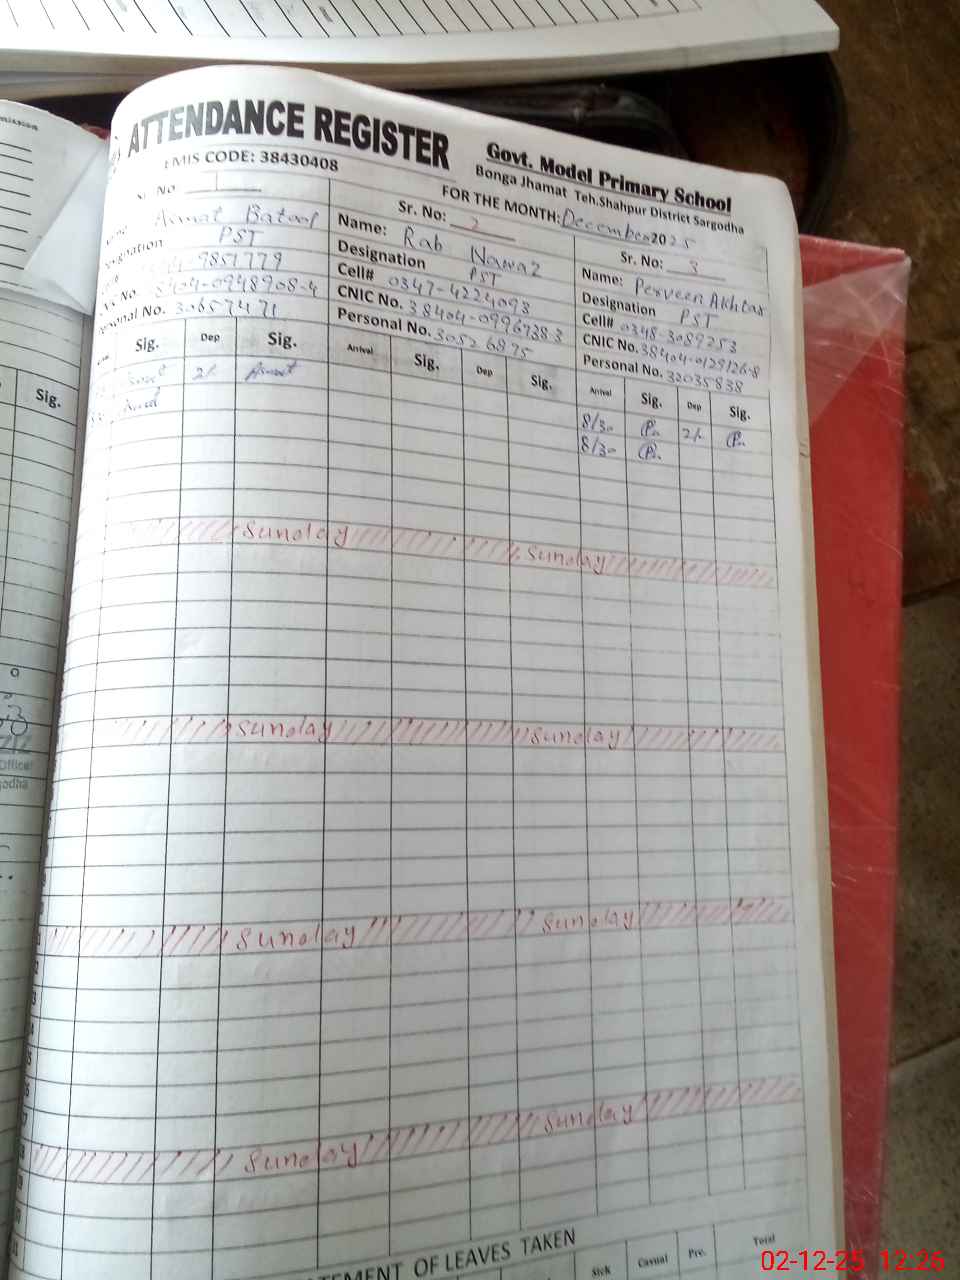 ATTENDANCE REGISTER
Govt. Model Primary School
EMIS CODE: 38430408
Bonga Jhamat Teh.Shahpur District Sargodha
FOR THE MONTH: December 2025
Sr. No 1
Batool
Designation PST
9851779
8404-0948908-4
Personal No. 30657471
Sig. Dep Sig.
2/.
Sr. No: 2
Name: Rab Nawaz
Designation PST
Cell# 0347-4224093
CNIC No. 38404-09967383
Personal No. 30526895
Arrival Sig. Dep Sig.
Sr. No: 3
Name: Perveen Akhtar
Designation PST
Cell# 0348-3089253
CNIC No. 38404-0129126-8
Personal No. 32035838
Arrival Sig. Dep Sig.
8/30 2/.
8/30
Sunday Sunday
Sunday Sunday
Sunday Sunday
Sunday Sunday
STATEMENT OF LEAVES TAKEN
Sick Casual Pre. Total
Sig.
Officer
02-12-25 12:26